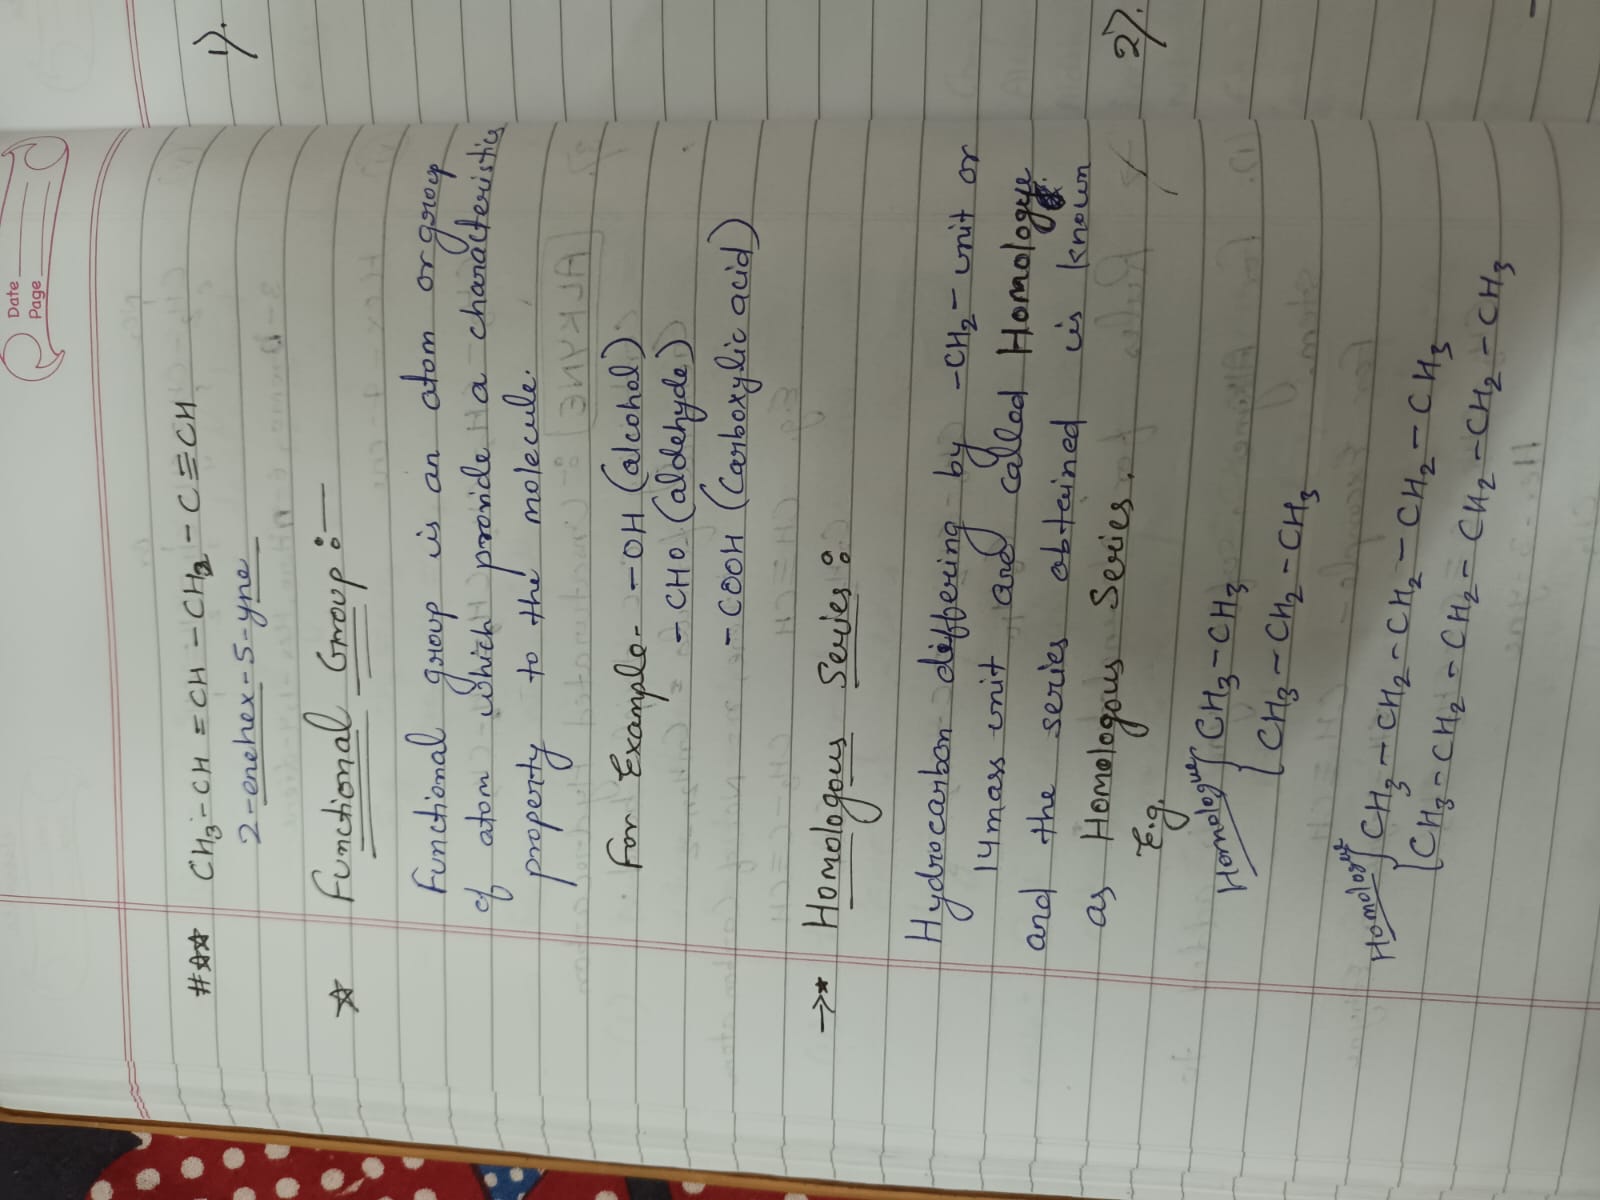 Date
Page
#☆☆ CH3-CH=CH-CH2-C≡CH
2-enehex-5-yne
☆ Functional Group :-
Functional group is an atom or group
of atom which provide a characteristics
property to the molecule.
For Example- -OH (alcohol)
-CHO (aldehyde)
-COOH (Carboxylic acid)
→* Homologous Series :
Hydrocarbon differing by -CH2- unit or
14 mass unit are called Homologue
and the series obtained is known
as Homologous Series.
E.g.
Homologue { CH3-CH3
{ CH3-CH2-CH3
Homologue { CH3-CH2-CH2-CH2-CH2-CH3
{ CH3-CH2-CH2-CH2-CH2-CH2-CH3
1).
2).